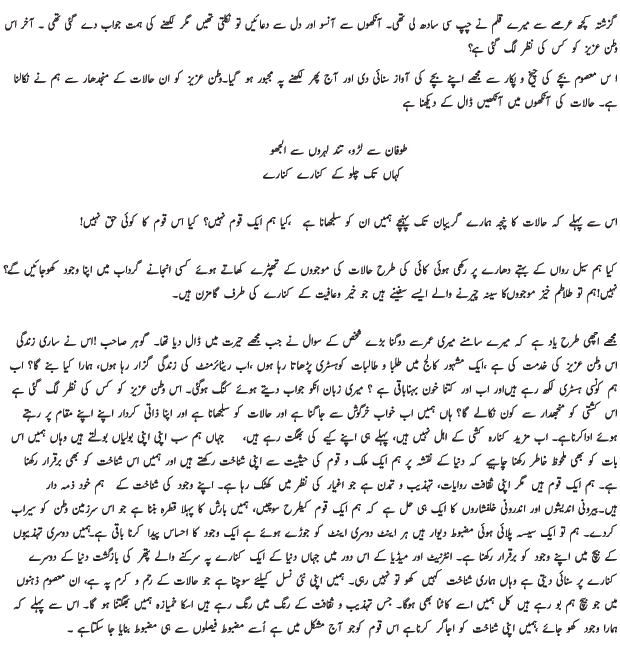 گزشتہ کچھ عرصے سے میرے قلم نے چپ سی سادھ لی تھی۔ آنکھوں سے آنسو اور دل سے دعائیں تو نکلتی تھیں مگر لکھنے کی ہمت جواب دے گئی تھی ۔ آخر اس
وطن عزیز کو کس کی نظر لگ گئی ہے؟
ا س معصوم بچے کی چیخ و پکار سے مجھے اپنے بچے کی آواز سنائی دی اور آج پھر لکھنے پہ مجبور ہو گیا۔وطن عزیز کو ان حالات کے منجدھار سے ہم نے نکالنا
ہے۔ حالات کی آنکھوں میں آنکھیں ڈال کے دیکھنا ہے
طوفان سے لڑو، تند لہروں سے الجھو
کہاں تک چلو گے کنارے کنارے
اس سے پہلے کہ حالات کا پنجہ ہمارے گریبان تک پہنچے ہمیں ان کو سلجھانا ہے ،کیا ہم ایک قوم نہیں؟ کیا اس قوم کا کوئی حق نہیں!
کیا ہم سیل رواں کے بہتے دھارے پر رکھی ہوئی کائی کی طرح حالات کی موجووں کے تھپیڑے کھاتے ہوئے کسی انجانے گرداب میں اپنا وجود کھوجائیں گے؟
نہیں!ہم تو طلاطم خیز موجووں کا سینہ چیرنے والے ایسے سفینے ہیں جو خیر وعافیت کے کنارے کی طرف گامزن ہیں۔
مجھے اچھی طرح یاد ہے کہ میرے سامنے میری عمرسے دوگنا بڑے شخص کے سوال نے جب مجھے حیرت میں ڈال دیا تھا۔ گوہر صاحب !اس نے ساری زندگی
اس وطن عزیز کی خدمت کی ہے ،ایک مشہور کالج میں طلبا و طالبات کوہسٹری پڑھاتا رہا ہوں ،اب ریٹائرمنٹ کی زندگی گزار رہا ہوں، ہمارا کیا بنے گا؟ اب
ہم کونسی ہسٹری لکھ رہے ہیں اور اب اور کتنا خون بہناباقی ہے ؟ میری زبان انکو جواب دیتے ہوئے گنگ ہوگئی۔ اس وطن عزیز کو کس کی نظر لگ گئی ہے
اس کشتی کو منجھدار سے کون نکالے گا؟ ہاں ہمیں اب خواب خرگوش سے جاگنا ہے اور حالات کو سلجھانا ہے اور اپنا ذاتی کردار اپنے اپنے مقام پر رہتے
ہوئے اداکرناہے۔ اب مزید کنارہ کشی کے اہل نہیں ہیں، پہلے ہی اپنے کیے کی بھگت رہے ہیں، جہاں ہم سب اپنی اپنی بولیاں بولتے ہیں وہاں ہمیں اس
بات کو بھی ملحوظ خاطر رکھنا چاہیے کہ دنیا کے نقشہ پر ہم ایک ملک و قوم کی حیثیت سے اپنی شناخت رکھتے ہیں اور ہمیں اس شناخت کو بھی برقرار رکھنا
ہے۔ ہم ایک قوم ہیں مگر اپنی ثقافت روایات، تہذیب و تمدن ہے جو اغیار کی نظر میں کھٹک رہا ہے۔ اپنے وجود کی شناخت کے ہم خود ذمہ دار
ہیں۔بیرونی اندیشوں اور اندرونی خلفشاروں کا ایک ہی حل ہے کہ ہم ایک قوم کیطرح سوچیں، ہمیں بارش کا پہلا قطرہ بننا ہے جو اس سرزمین وطن کو سیراب
کردے۔ ہم تو ایک سیسہ پلائی ہوئی مضبوط دیوار ہیں ہر اینٹ دوسری اینٹ کو جوڑے ہوئے ہے ایک وجود کا احساس پیدا کرنا باقی ہے۔ہمیں دوسری تہذیبوں
کے بیچ میں اپنے وجود کو برقرار رکھنا ہے۔ انٹرنیٹ اور میڈیا کے اس دور میں جہاں دنیا کے ایک کنارے پہ سرکنے والے پتھر کی بازگشت دنیا کے دوسرے
کنارے پر سنائی دیتی ہے وہاں ہماری شناخت کہیں کھو تو نہیں رہی۔ ہمیں اپنی نئی نسل کیلئے سوچنا ہے جو حالات کے رحم و کرم پہ ہے، ان معصوم ذہنوں
میں جو بیچ ہم بو رہے ہیں کل ہمیں اسے کاٹنا بھی ہوگا۔ جس تہذیب و ثقافت کے رنگ میں رنگ رہے ہیں اسکا خمیازہ ہمیں بھگتنا ہو گا۔ اس سے پہلے کہ
ہمارا وجود کھو جائے ہمیں اپنی شناخت کو اجاگر کرناہے اس قوم کوجو آج مشکل میں ہے اُسے مضبوط فیصلوں سے ہی مضبوط بنایا جا سکتاہے ۔